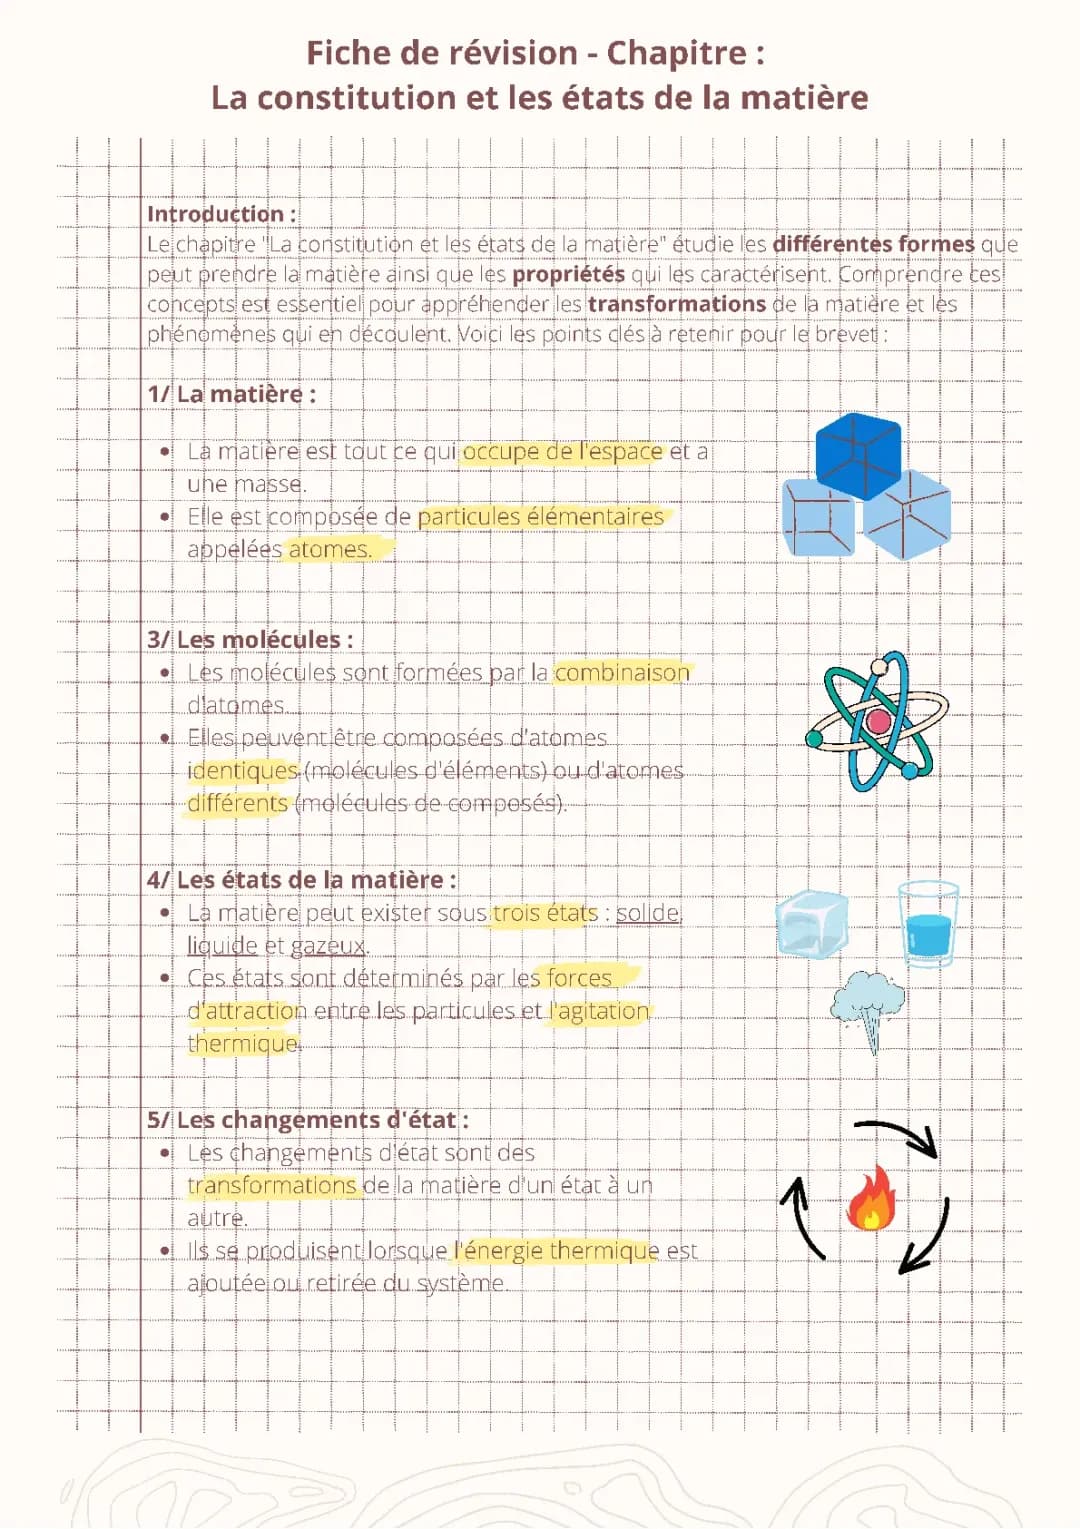 Fiche de révision - Chapitre :
La constitution et les états de la matière
Introduction :
Le chapitre "La constitution et les états de la matière" étudie les différentes formes que
peut prendre la matière ainsi que les propriétés qui les caractérisent. Comprendre ces
concepts est essentiel pour appréhender les transformations de la matière et les
phénomènes qui en découlent. Voici les points clés à retenir pour le brevet :
1/ La matière :
• La matière est tout ce qui occupe de l'espace et a
une masse.
• Elle est composée de particules élémentaires
appelées atomes.
3/ Les molécules :
• Les molécules sont formées par la combinaison
d'atomes.
• Elles peuvent être composées d'atomes
identiques (molécules d'éléments) ou d'atomes
différents (molécules de composés).
4/ Les états de la matière :
• La matière peut exister sous trois états : solide,
liquide et gazeux.
• Ces états sont déterminés par les forces
d'attraction entre les particules et l'agitation
thermique.
5/ Les changements d'état :
• Les changements d'état sont des
transformations de la matière d'un état à un
autre.
• Ils se produisent lorsque l'énergie thermique est
ajoutée ou retirée du système.